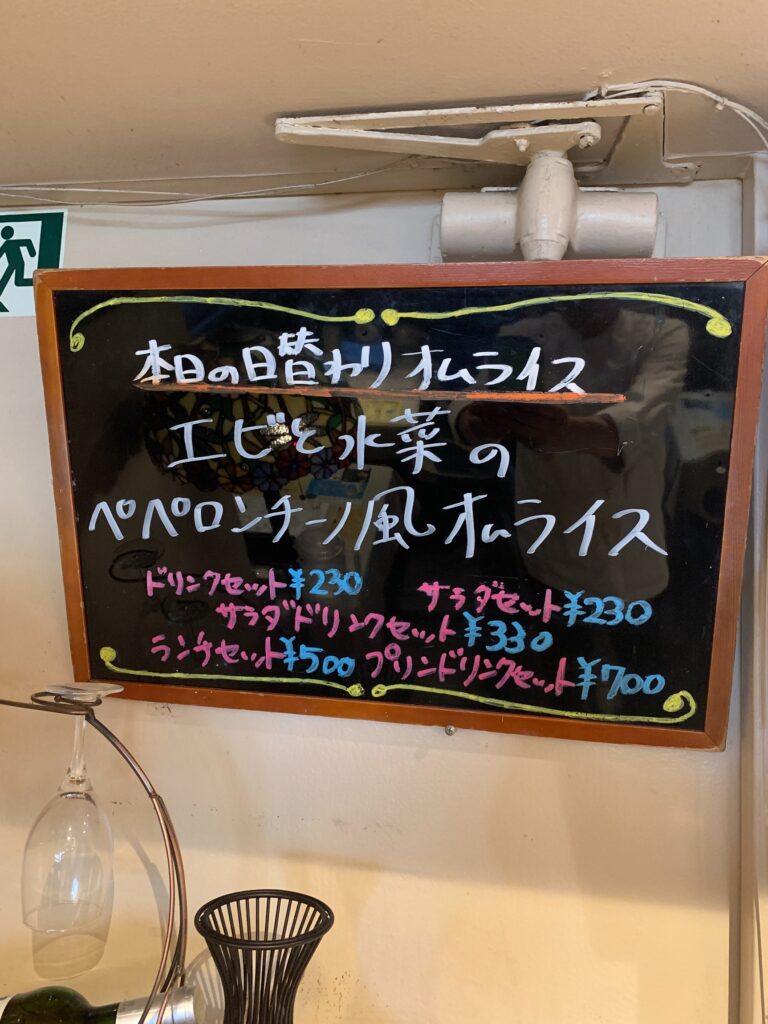 本日の日替わりオムライス
エビと水菜の
ペペロンチーノ風オムライス
ドリンクセット¥230 サラダセット¥230
サラダドリンクセット¥330
ランチセット¥500 プリンドリンクセット¥700